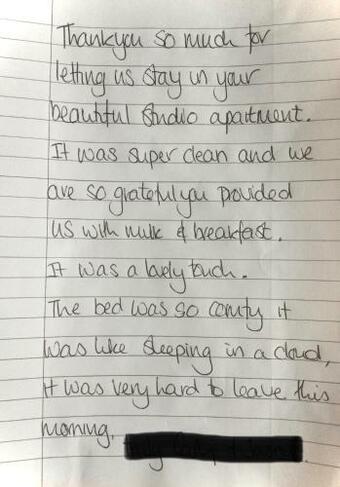 Thankyou so much for
letting us stay in your
beautiful studio apartment.
It was super clean and we
are so grateful you provided
us with milk & breakfast.
It was a lovely touch.
The bed was so comfy it
was like sleeping in a cloud,
it was very hard to leave this
morning.